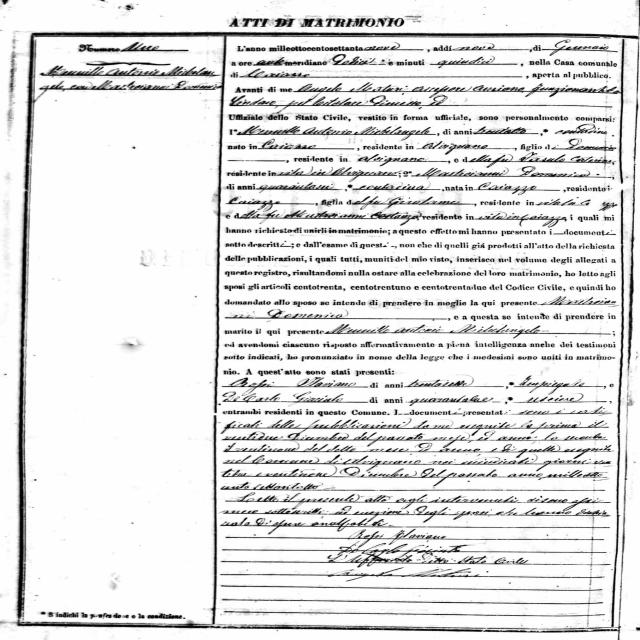 ATTI DI MATRIMONIO
Numero Uno
Mannillo Antonio Michelan
gelo, con Mastroianni Domeni
L'anno milleottocentosettanta nove, addì nove, di Gennaio
a ore antimeridiane dodici e minuti quindici, nella Casa comunale
di Caiazzo, aperta al pubblico.
Avanti di me Angelo funzionante da
Sindaco, pel
Uffiziale dello Stato Civile, vestito in forma uffiziale, sono personalmente comparsi:
1° Antonio Michelangelo, di anni trentotto, * contadino
nato in Caiazzo, residente in Alvignano, figlio di Domenico
, residente in Alvignano, e della fu
residente in vita in Alvignano; 2° Mastroianni Domenica
di anni quarantuno * contadina, nata in Caiazzo, residente in
Caiazzo, figlia del fu Girolamo, residente in vita in
e della fu Mastroianni, residente in vita in Caiazzo; i quali mi
hanno richiesto di unirli in matrimonio; a questo effetto mi hanno presentato i documenti
sotto descritti; e dall'esame di questi, non che di quelli già prodotti all'atto della richiesta
delle pubblicazioni, i quali tutti, muniti del mio visto, inserisco nel volume degli allegati a
questo registro, risultandomi nulla ostare alla celebrazione del loro matrimonio, ho letto agli
sposi gli articoli centotrenta, centotrentuno e centotrentadue del Codice Civile, e quindi ho
domandato allo sposo se intende di prendere in moglie la qui presente Mastroian
ni Domenica, e a questa se intende di prendere in
marito il qui presente Antonio Michelangelo;
ed avendomi ciascuno risposto affermativamente a piena intelligenza anche dei testimoni
sotto indicati, ho pronunziato in nome della legge che i medesimi sono uniti in matrimo-
nio. A quest'atto sono stati presenti:
Rossi Flaviano di anni trentasette, * Impiegato, e
Di Carlo di anni quarantadue * usciere,
entrambi residenti in questo Comune. I documenti presentati sono i certi
ficati delle pubblicazioni da me eseguite la prima il
ventidue Dicembre del passato mese, ed anno, la seconda
il ventinove del detto mese ed anno, e di quelle eseguite
nel Comune di Alvignano nei giorni ven
tidue e ventinove Dicembre del passato anno mille otto
cento settantotto
Letto il presente atto agli intervenuti si sono essi
meco sottoscritti ad eccezione degli sposi che hanno dichia
rato di essere analfabeti.
Rossi Flaviano
Di Carlo
L'Uffiziale dello Stato Civile
Angelo
* S'indichi la professione o la condizione.